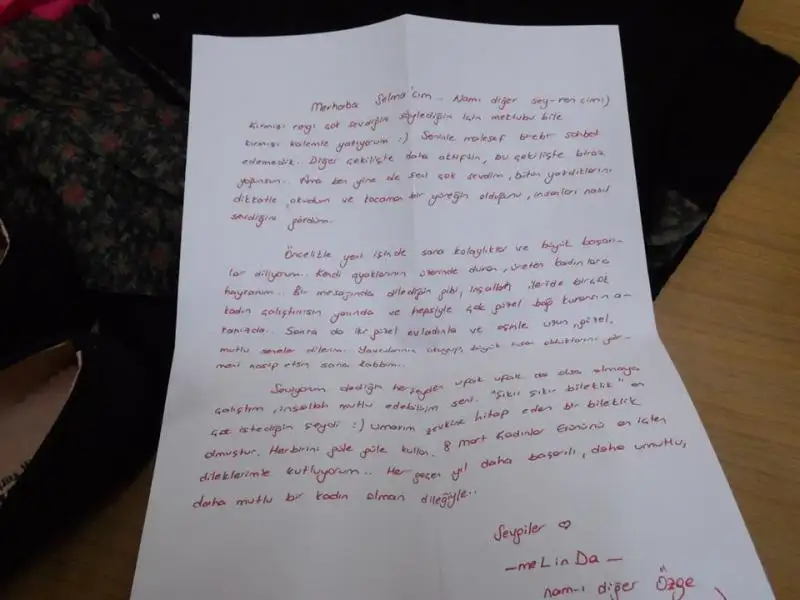 Merhaba Selma'cım.. Namı diğer sey-ren cim:)
Kırmızı rengi çok sevdiğini söylediğin için mektubu bile
kırmızı kalemle yazıyorum :) Seninle malesef birebir sohbet
edemedik.. Diğer çekilişte daha aktiftin, bu çekilişte biraz
yoğunsun.. Ama ben yine de seni çok sevdim, bütün yazdıklarını
dikkatle okudum ve kocaman bir yüreğin olduğunu, insanları nasıl
sevdiğini gördüm..
Öncelikle yeni işinde sana kolaylıklar ve büyük başarı-
lar diliyorum.. Kendi ayaklarının üzerinde duran, üreten kadınlara
hayranım.. Bir mesajında dilediğin gibi, inşallah ileride birçok
kadın çalıştırırsın yanında ve hepsiyle çok güzel bağ kurarsın a-
ranızda.. Sonra da iki güzel evladınla ve eşinle uzun, güzel,
mutlu seneler dilerim. Yavrularının okuyup, büyük insan olduklarını gör-
meni nasip etsin sana Rabbim..
Seviyorum dediğin herşeyden ufak ufak da olsa almaya
çalıştım, inşallah mutlu edebilirim seni. "Şıkır şıkır bileklik" en
çok istediğin şeydi :) Umarım zevkine hitap eden bir bileklik
olmuştur. Herbirini güle güle kullan. 8 Mart Kadınlar Gününü en içten
dileklerimle kutluyorum.. Her geçen yıl daha başarılı, daha umutlu,
daha mutlu bir kadın olman dileğiyle..
Sevgiler ♡
-meLinDa-
nam-ı diğer Özge